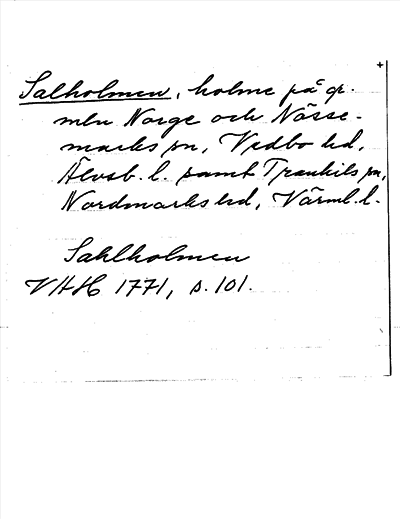 +
Salholmen, holme på gr.
mln Norge och Nösse-
marks sn, Vedbo hd,
Älvsb. l. samt Trankils sn,
Nordmarks hd, Värml. l.
Sahlholmen
VAH 1771, s. 101.